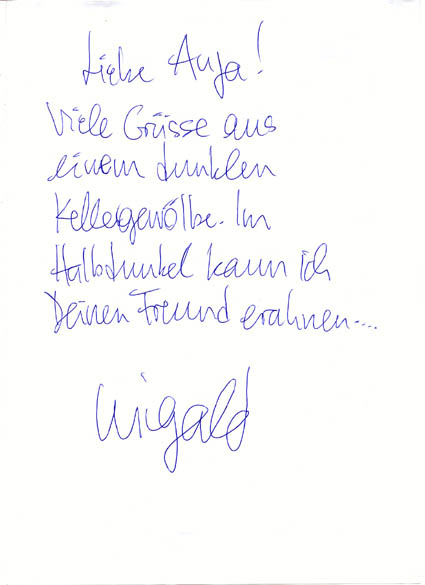 Liebe Anja!
Viele Grüsse aus
einem dunklen
Kellergewölbe. Im
Halbdunkel kann ich
Deinen Freund erahnen....
Wigald